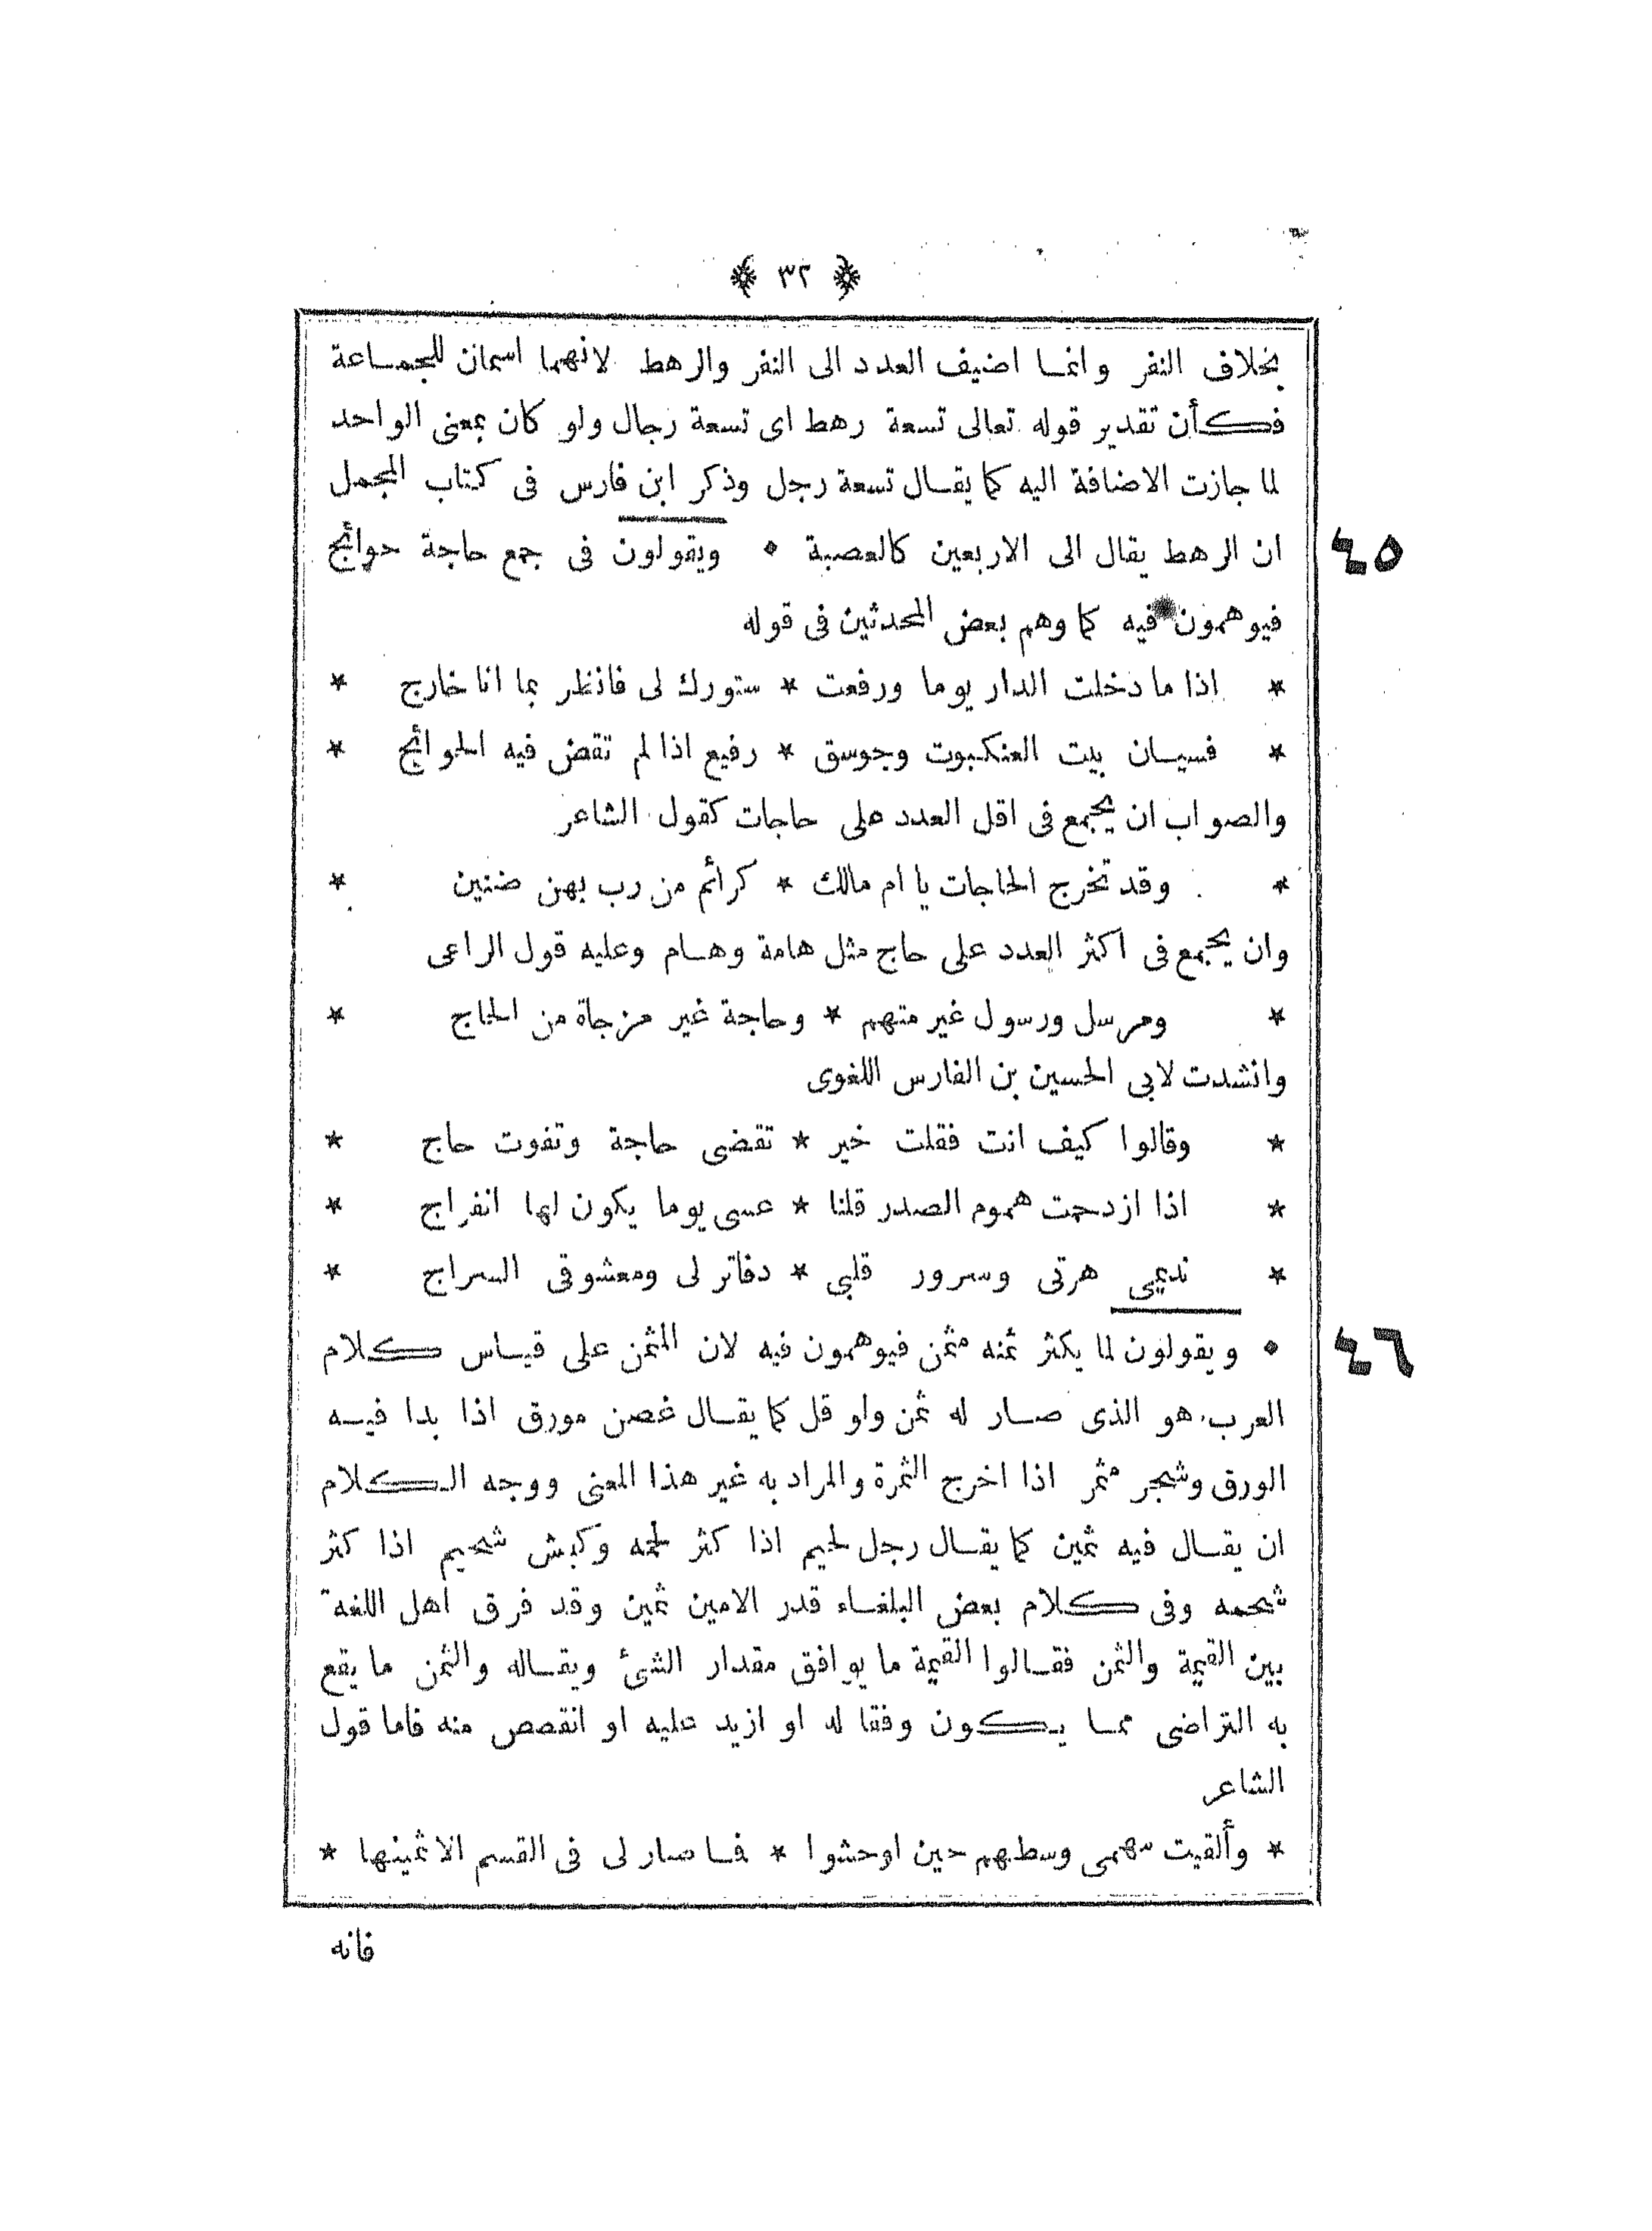 ﴿ ٣٢ ﴾
بخلاف النفر وانما اضيف العدد الى النفر والرهط لانهما اسمان للجماعة
فكأن تقدير قوله تعالى تسعة رهط اى تسعة رجال ولو كان بمعنى الواحد
لما جازت الاضافة اليه كما يقال تسعة رجل وذكر ابن فارس فى كتاب المجمل
ان الرهط يقال الى الاربعين كالعصبة • ويقولون فى جمع حاجة حوائج
٤٥
فيوهمون فيه كما وهم بعض المحدثين فى قوله
* اذا ما دخلت الدار يوما ورفعت * ستورك لى فانظر بما انا خارج *
* فسيان بيت العنكبوت وجوسق * رفيع اذا لم تقض فيه الحوائج *
والصواب ان يجمع فى اقل العدد على حاجات كقول الشاعر
* وقد تخرج الحاجات يا ام مالك * كرائم من رب بهن ضنين *
وان يجمع فى اكثر العدد على حاج مثل هامة وهام وعليه قول الراعى
* ومرسل ورسول غير متهم * وحاجة غير مزجاة من الحاج *
وانشدت لابى الحسين بن الفارس اللغوى
* وقالوا كيف انت فقلت خير * تقضى حاجة وتفوت حاج *
* اذا ازدحمت هموم الصدر قلنا * عسى يوما يكون لها انفراج *
* نديمى هرتى وسرور قلبى * دفاتر لى ومعشوقى السراج *
• ويقولون لما يكثر ثمنه مثمن فيوهمون فيه لان المثمن على قياس كلام
٤٦
العرب هو الذى صار له ثمن ولو قل كما يقال غصن مورق اذا بدا فيه
الورق وشجر مثمر اذا اخرج الثمرة والمراد به غير هذا المعنى ووجه الكلام
ان يقال فيه ثمين كما يقال رجل لحيم اذا كثر لحمه وكبش شحيم اذا كثر
شحمه وفى كلام بعض البلغاء قدر الامين ثمين وقد فرق اهل اللغة
بين القيمة والثمن فقالوا القيمة ما يوافق مقدار الشئ ويقاله والثمن ما يقع
به التراضى مما يكون وفقا له او ازيد عليه او انقصص منه فاما قول
الشاعر
* وألقيت سهمى وسطهم حين اوحشوا * فما صار لى فى القسم الا ثمينها *
فانه